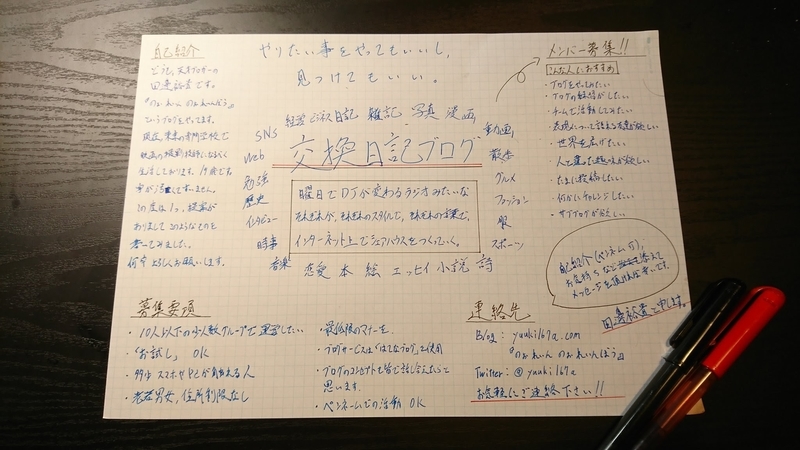 自己紹介
どうも、天才ブロガーの
田邊裕貴です。
『のぉれいん のぉれいんぼう』
というブログをやってます。
現在、東京の専門学校で
映画の撮影技師になるべく
生活しております。19歳です。
何卒よろしくお願いします。
やりたい事をやってもいいし、
見つけてもいい。
経営 ビジネス 日記 雑記 写真 漫画
SNS
Web
勉強
歴史
インタビュー
時事
音楽
交換日記ブログ
曜日でDJが変わるラジオみたいな
それぞれが、それぞれのスタイルで、それぞれの言葉で、
インターネット上でシェアハウスをつくっていく。
動画
散歩
グルメ
ファッション
服
スポーツ
恋愛 本 絵 エッセイ 小説 詩
メンバー募集!!
こんな人におすすめ
・ブログをやってみたい
・ブログの練習がしたい
・チームで活動してみたい
・表現について語れる友達が欲しい
・世界を広げたい
・人と違った趣味が欲しい
・たまに投稿したい
・何かにチャレンジしたい
・サブブログが欲しい
自己紹介(ペンネーム可)、
お気持ちなど添えて
メッセージを頂ければ幸いです。
田邊裕貴と申します。
募集要項
・10人以下の少人数グループで運営したい
・「お試し」OK
・スマホやPCがある人
・老若男女、住所制限なし
・最低限のマナーを。
・ブログサービスは「はてなブログ」を使用
・ブログのコンセプトも皆で話し合えたらと
思います。
・ペンネームでの活動OK
連絡先
Blog : yuuki167a.com
『のぉれいん のぉれいんぼう』
Twitter : @yuuki167a
お気軽にご連絡下さい!!